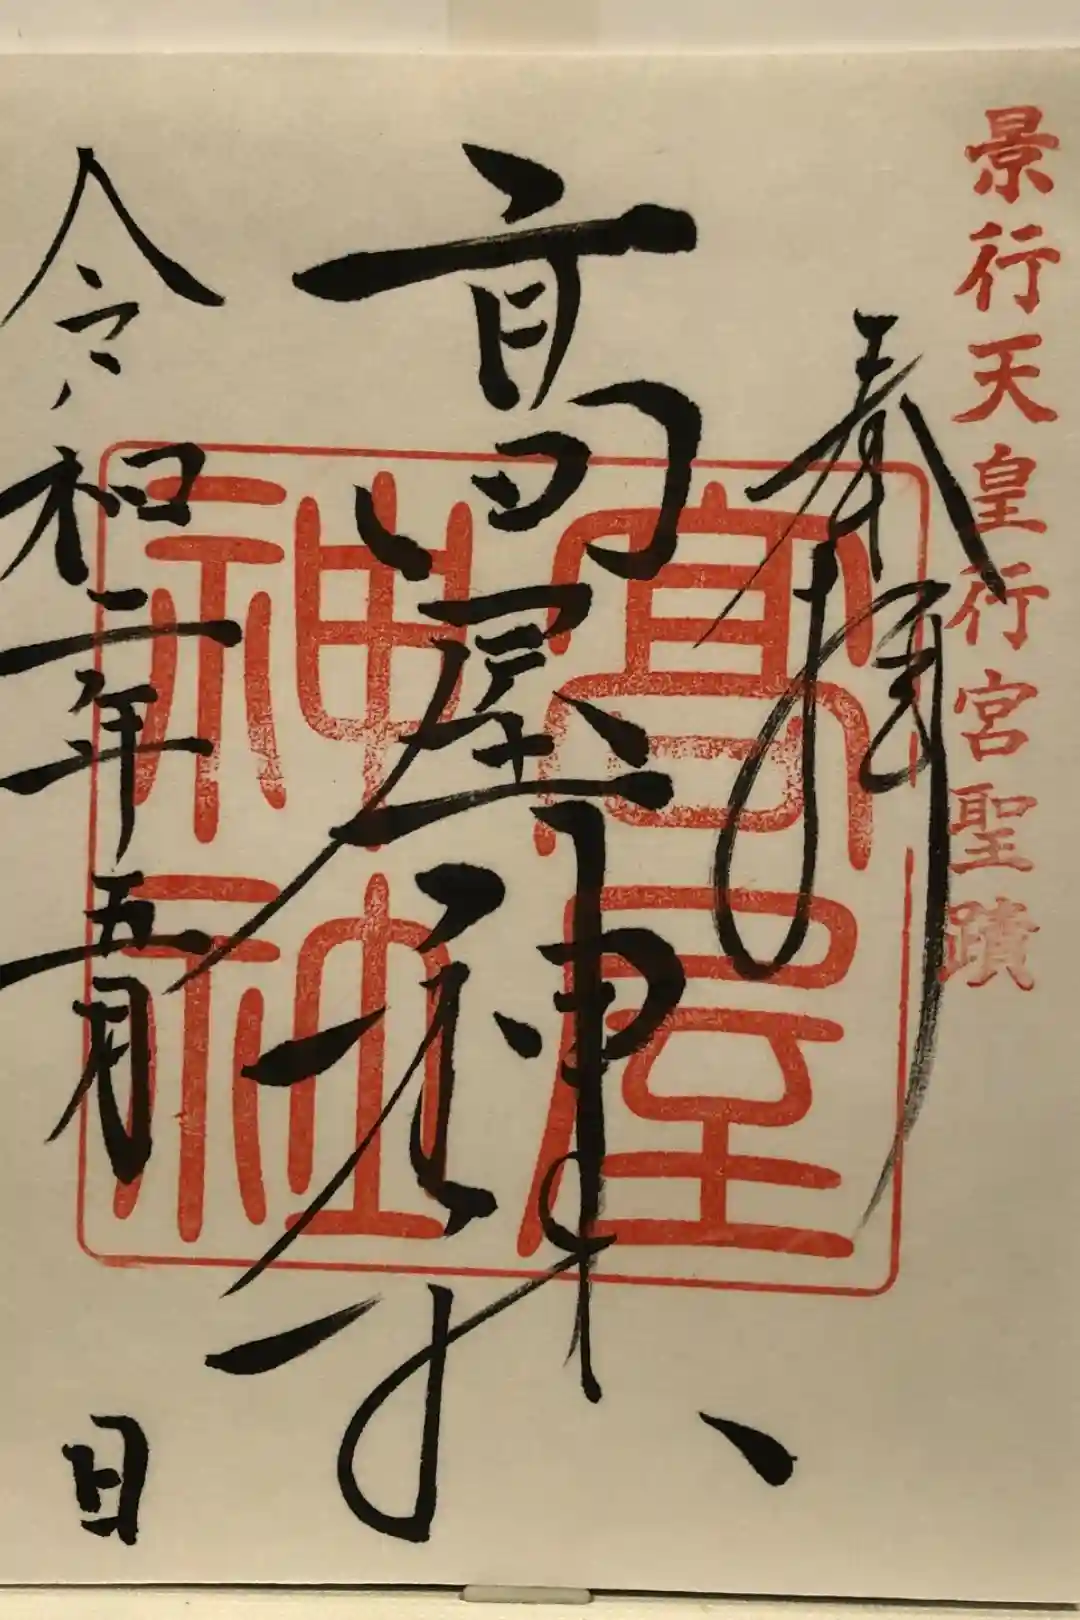 景行天皇行宮聖蹟
奉拝
髙屋神社
令和二年五月 日
高屋
神社